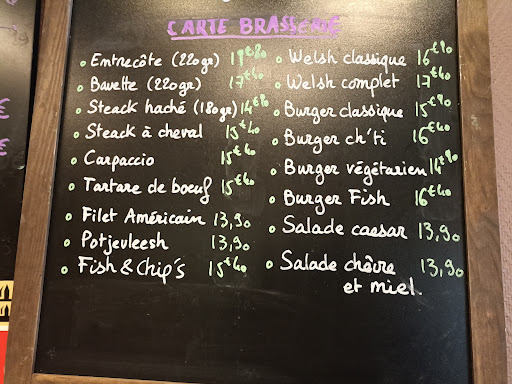 CARTE BRASSERIE
Entrecôte (220gr) 19€80
Bavette (220gr) 17€40
Steack haché (180gr) 14€80
Steack à cheval 15€40
Carpaccio 15€40
Tartare de boeuf 15€40
Filet Américain 13,90
Potjevleesh 13,90
Fish & Chip's 15€40
Welsh classique 16€90
Welsh complet 17€40
Burger classique 15€90
Burger ch'ti 16€40
Burger végétarien 14€90
Burger Fish 16€40
Salade caesar 13,90
Salade chèvre 13,90
et miel.